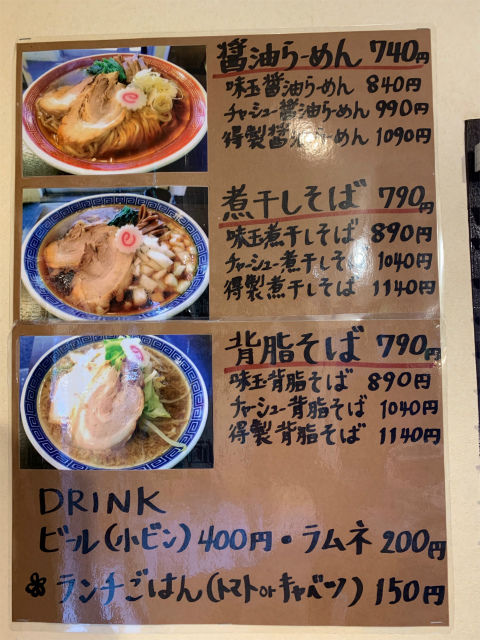 醤油らーめん 740円
味玉醤油らーめん 840円
チャーシュー醤油らーめん 990円
得製醤油らーめん 1090円
煮干しそば 790円
味玉煮干しそば 890円
チャーシュー煮干しそば 1040円
得製煮干しそば 1140円
背脂そば 790円
味玉背脂そば 890円
チャーシュー背脂そば 1040円
得製背脂そば 1140円
DRINK
ビール(小ビン)400円・ラムネ 200円
ランチごはん(トマトorキャベツ) 150円